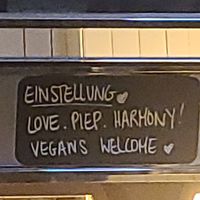 EINSTELLUNG
LOVE. PIEP. HARMONY!
VEGANS WELCOME